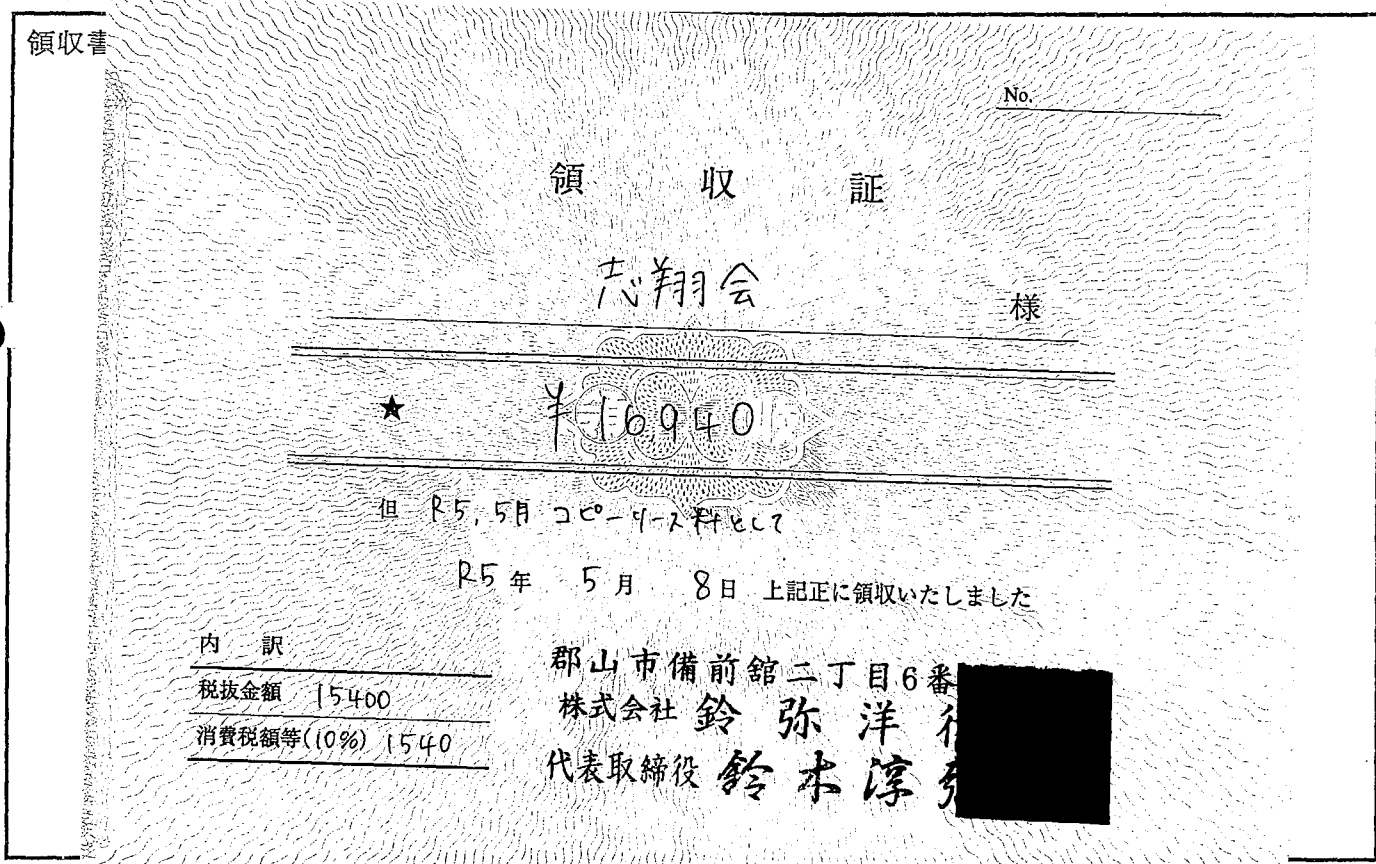 領収書
No.
領収証
志翔会 様
★ ¥16940
但 R5.5月 コピーリース料として
R5年 5月 8日 上記正に領収いたしました
内 訳
税抜金額 15400
消費税額等(10%) 1540
郡山市備前舘二丁目6番
株式会社 鈴弥洋行
代表取締役 鈴木淳